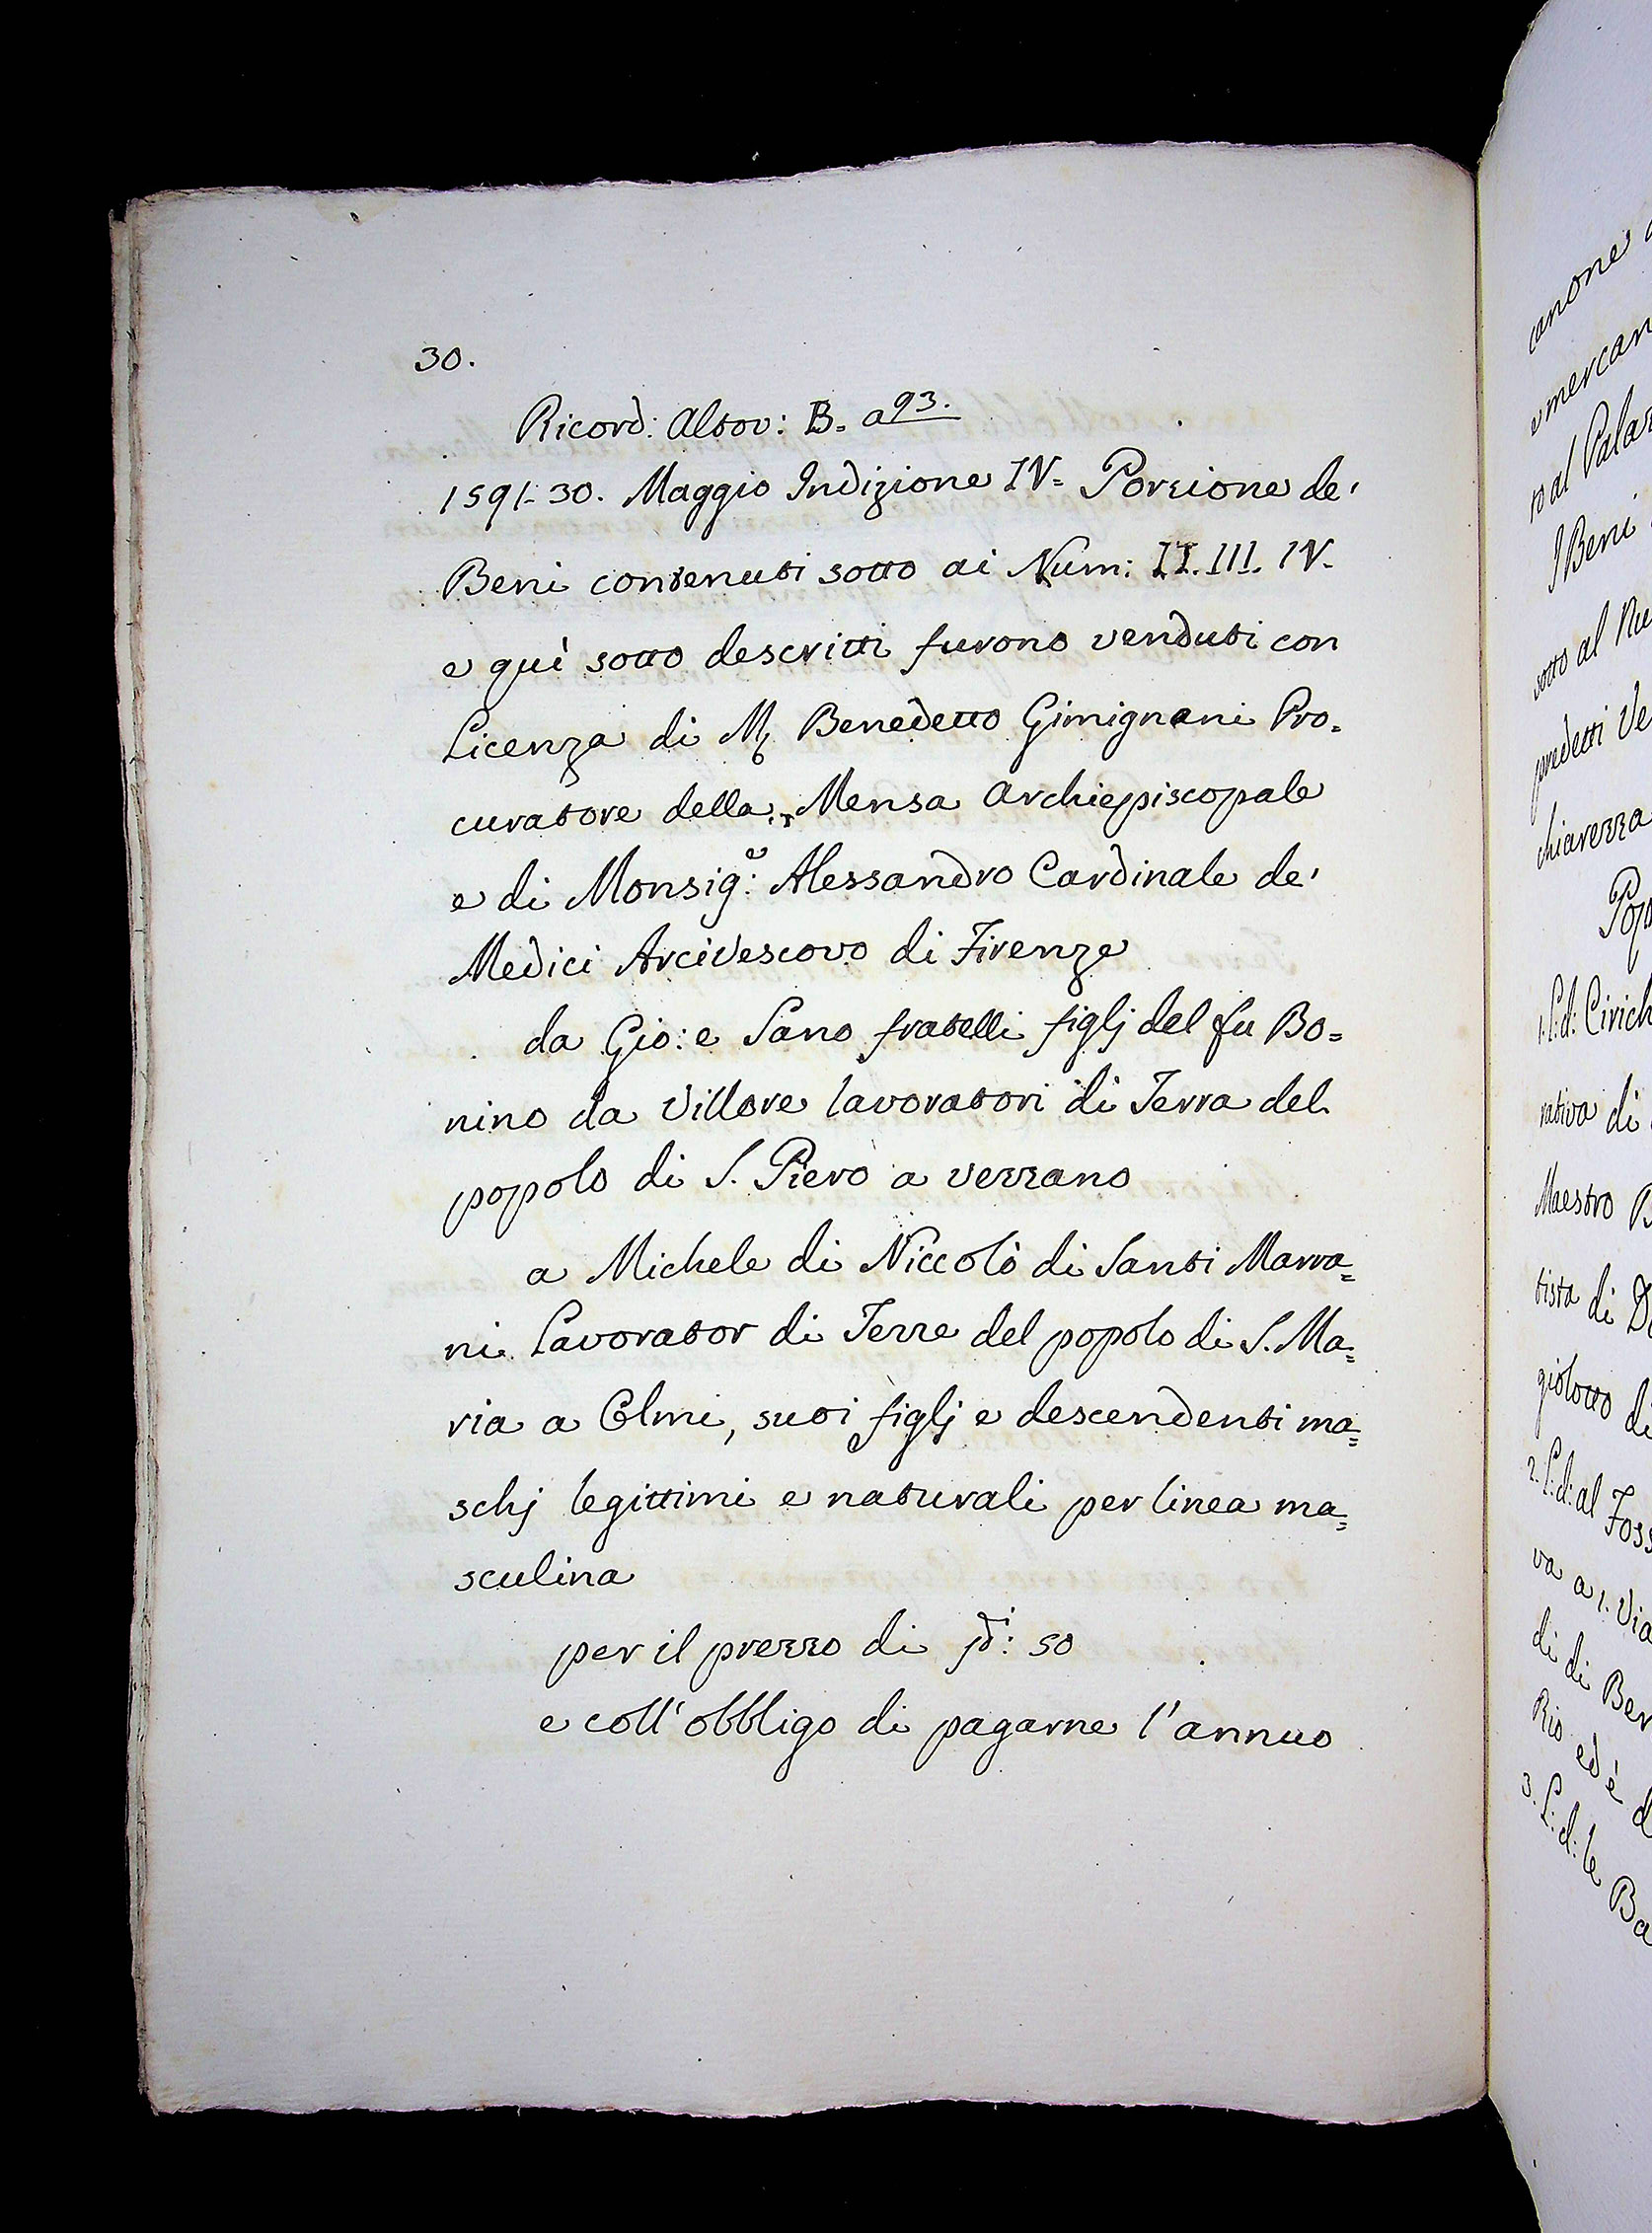 30.
Ricord: Altov: B. a 93.
1591. 30. Maggio Indizione IV. Porzione de'
Beni contenuti sotto ai Num: II. III. IV.
e quì sotto descritti furono venduti con
Licenza di M. Benedetto Gimignani Pro=
curatore della Mensa Archiepiscopale
e di Monsig:e Alessandro Cardinale de'
Medici Arcivescovo di Firenze
da Gio: e Sano fratelli figlj del fu Bo=
nino da Villore lavoratori di Terra del
popolo di S. Piero a verzano
a Michele di Niccolò di Santi Marra=
ni Lavorator di Terre del popolo di S. Ma=
ria a Olmi, suoi figlj e descendenti ma=
schj legittimi e naturali per linea ma=
sculina
per il prezzo di 50
e coll'obbligo di pagarne l'annuo
canone
e mercan
ro al Palaz
I Beni
sotto al Nu
predetti Ve
chiarezza
Pop
1. L:d: Cirich
rativa di
Maestro B
tista di D
giolotto di
2. L:d: al Foss
va a 1. Via
di di Ber
Rio ed è d
3. L:d: le Ba